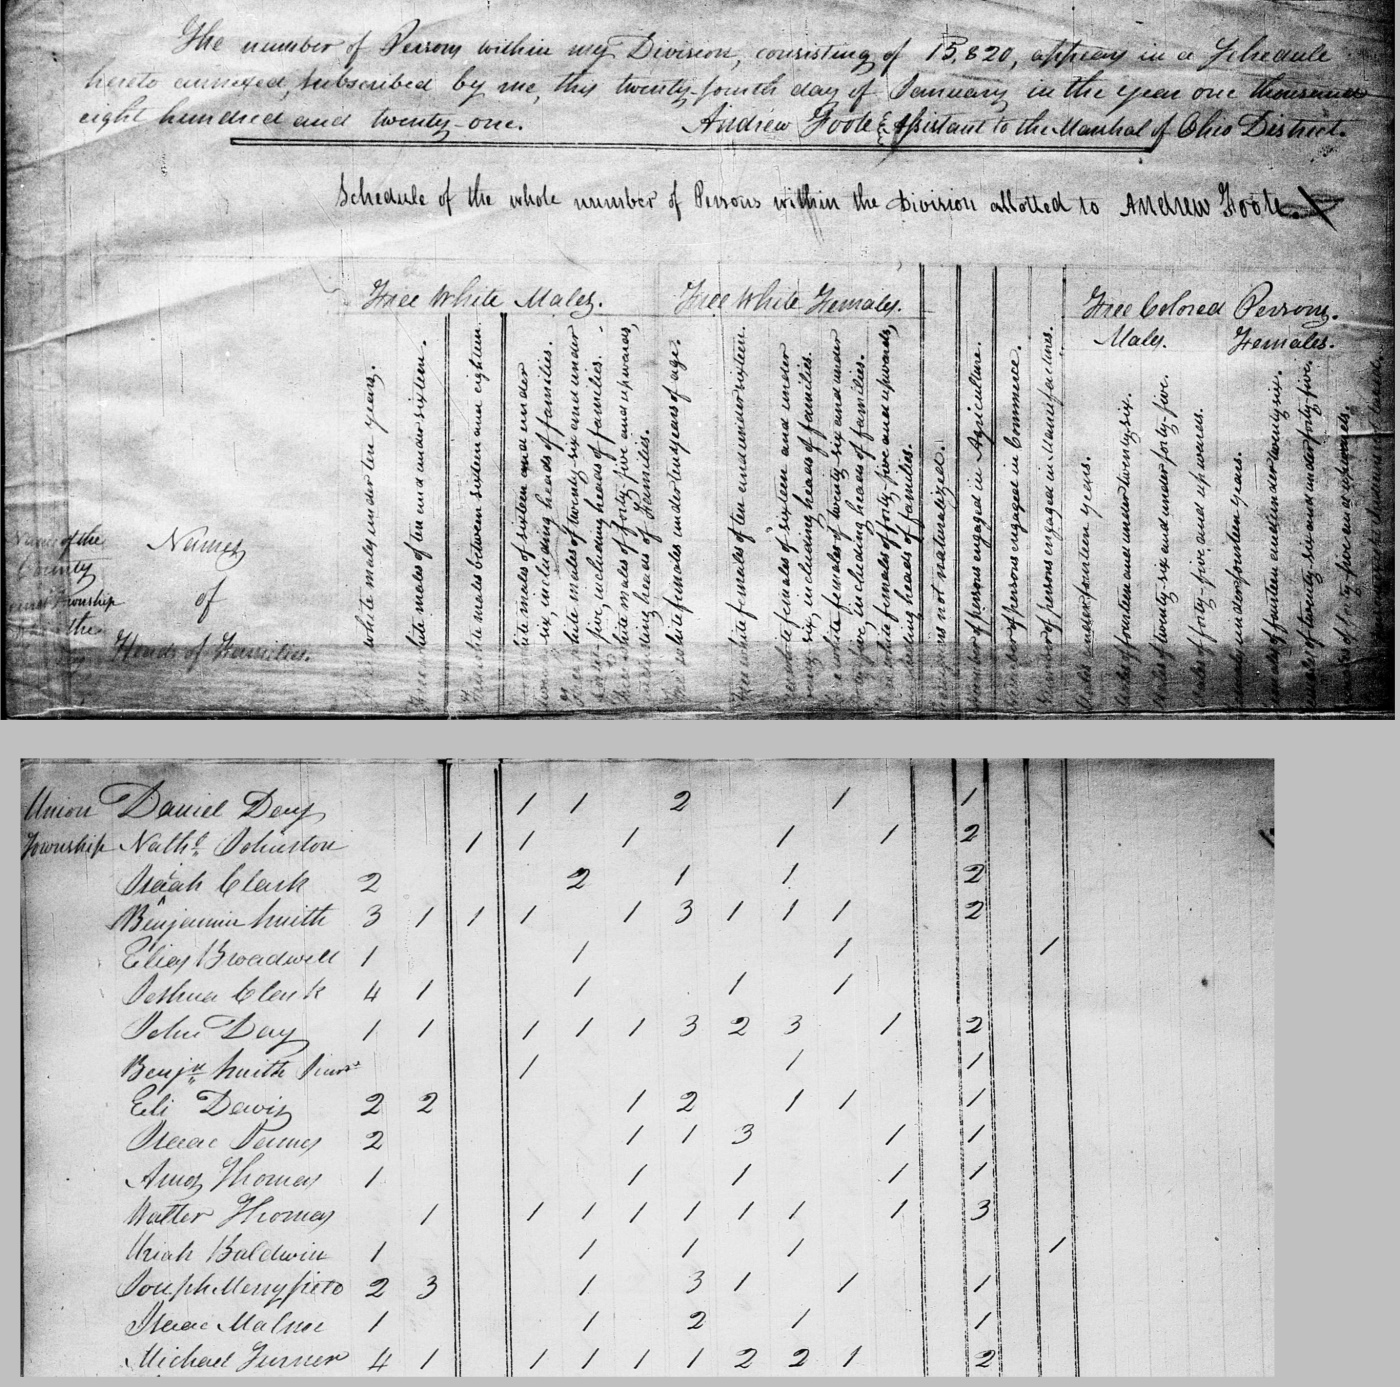 The number of Persons within my Division, consisting of 15,820, appears in a Schedule
hereto annexed, subscribed by me, this twenty-fourth day of January in the year one thousand
eight hundred and twenty-one. Andrew Foote Assistant to the Marshal of Ohio District.
Schedule of the whole number of Persons within the Division allotted to Andrew Foote.
Free White Males. Free White Females. Free Colored Persons.
Males. Females.
white males under ten years.
white males of ten and under sixteen.
white males between sixteen and eighteen
white males of sixteen and under
six, including heads of families.
white males of twenty-six and under
five, including heads of families.
white males of forty-five and upwards,
heads of Families.
white females under ten years of age.
Free white females of ten and under sixteen.
white females of sixteen and under
six, including heads of families.
white females of twenty-six and under
five, including heads of families.
white females of forty-five and upwards,
heads of families.
not naturalized.
Number of persons engaged in Agriculture.
Number of persons engaged in Commerce.
Number of persons engaged in Manufactures.
Males under fourteen years.
Males of fourteen and under twenty-six.
Males of twenty-six and under forty-five.
Males of forty-five and upwards.
under fourteen years.
of fourteen and under twenty-six.
of twenty-six and under forty-five.
of forty-five and upwards.
Name of the
County
Township
the
Names
of
Heads of Families.
Union Daniel Day 1 1 2 1 1
Township Nathl. Johnston 1 1 1 1 1 2
Isaiah Clark 2 2 1 1 2
Benjamin Smith 3 1 1 1 1 3 1 1 1 2
Elias Broadwell 1 1 1 1
Joshua Clark 4 1 1 1 1
John Day 1 1 1 1 1 3 2 3 1 2
Benjn. Smith Junr. 1 1 1
Eli Davis 2 2 1 2 1 1 1
Isaac 2 1 1 3 1 1
Amos Thomas 1 1 1 1 1
Walter Thomas 1 1 1 1 1 1 1 1 3
Uriah Baldwin 1 1 1 1 1
Joseph Merryfield 2 3 1 3 1 1 1
Isaac 1 1 2 1 1
Michael Turner 4 1 1 1 1 1 2 2 1 2